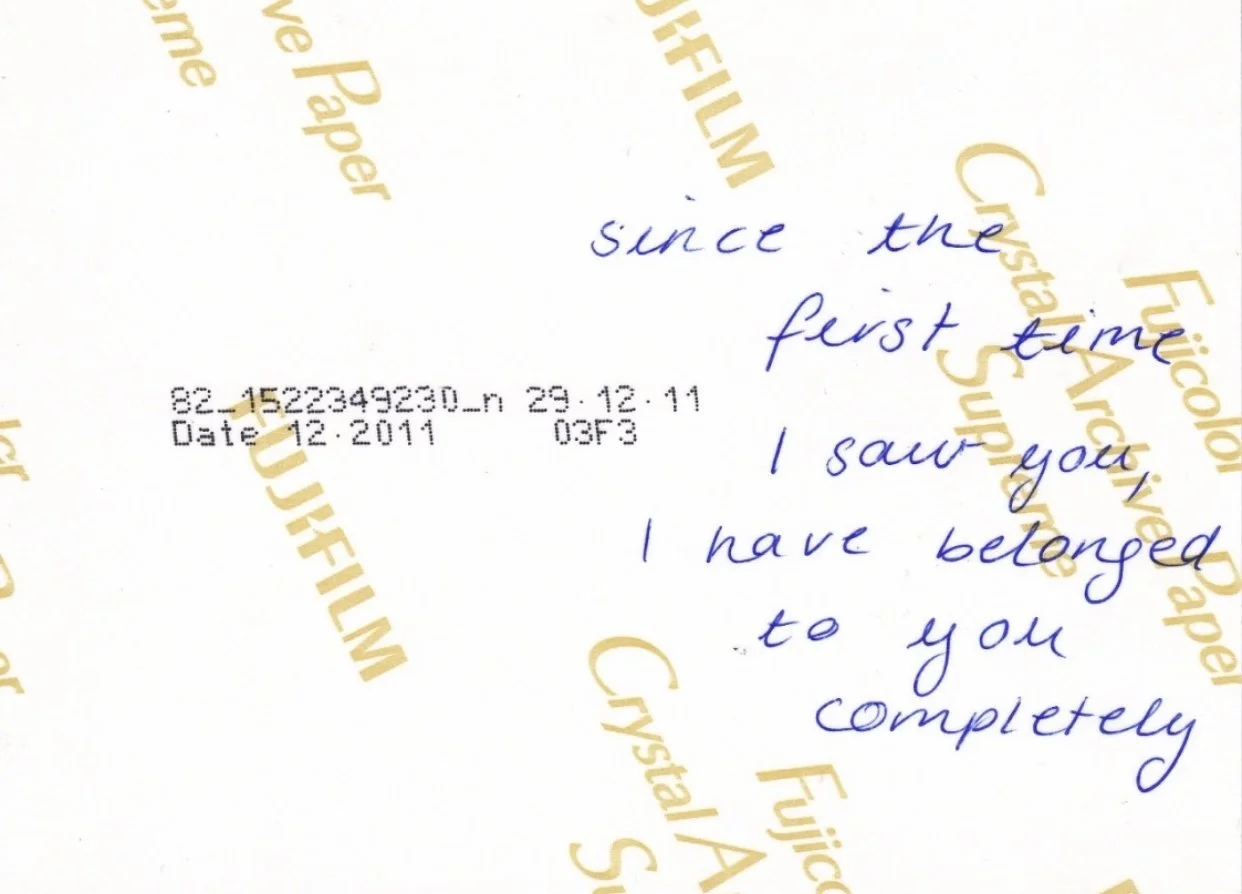 eme
ve Paper
FUJIFILM
Crystal Archive Paper
Supreme
Fujicolor
since the
first time
82_1522349230_n 29·12·11
Date 12·2011 03F3
I saw you,
I have belonged
to you
completely
FUJIFILM
Crystal A
Fujico
Su